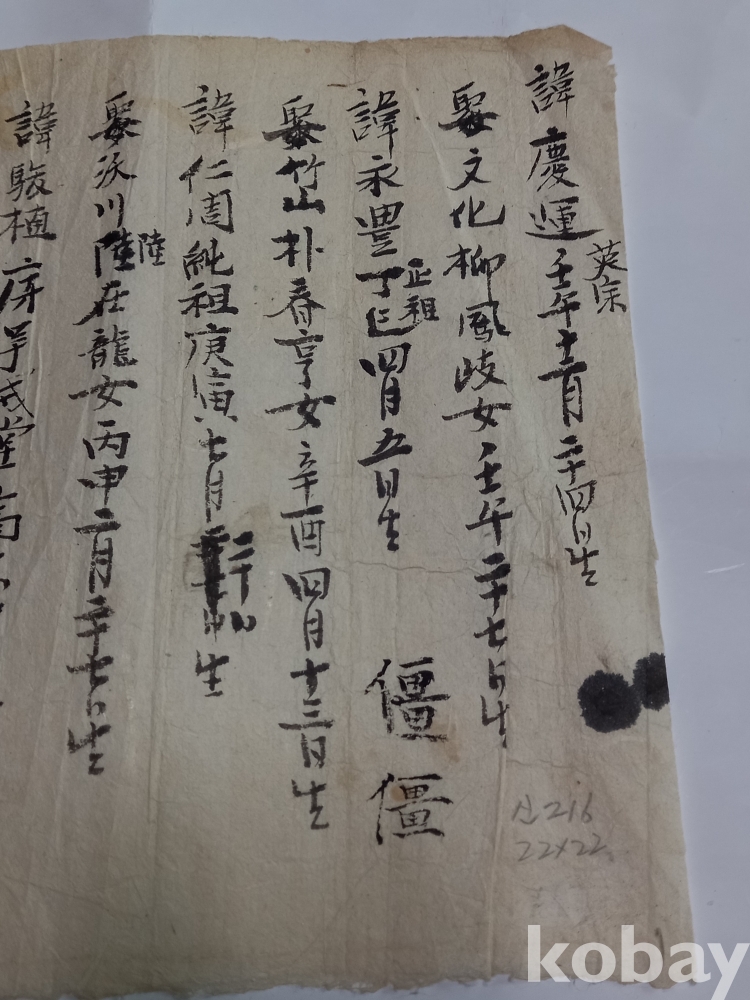 諱慶運 英宗 壬午十二月二十四日生
娶文化柳鳳岐女壬午二十七日生
諱永豊 正祖 丁巳四月五日生
僵 僵
娶竹山朴春亨女辛酉四月十三日生
諱仁周純祖庚寅七月二十四生
娶沃川陸 陸 在龍女丙申二月二十七日生
諱駿植
산216
22x22
kobay